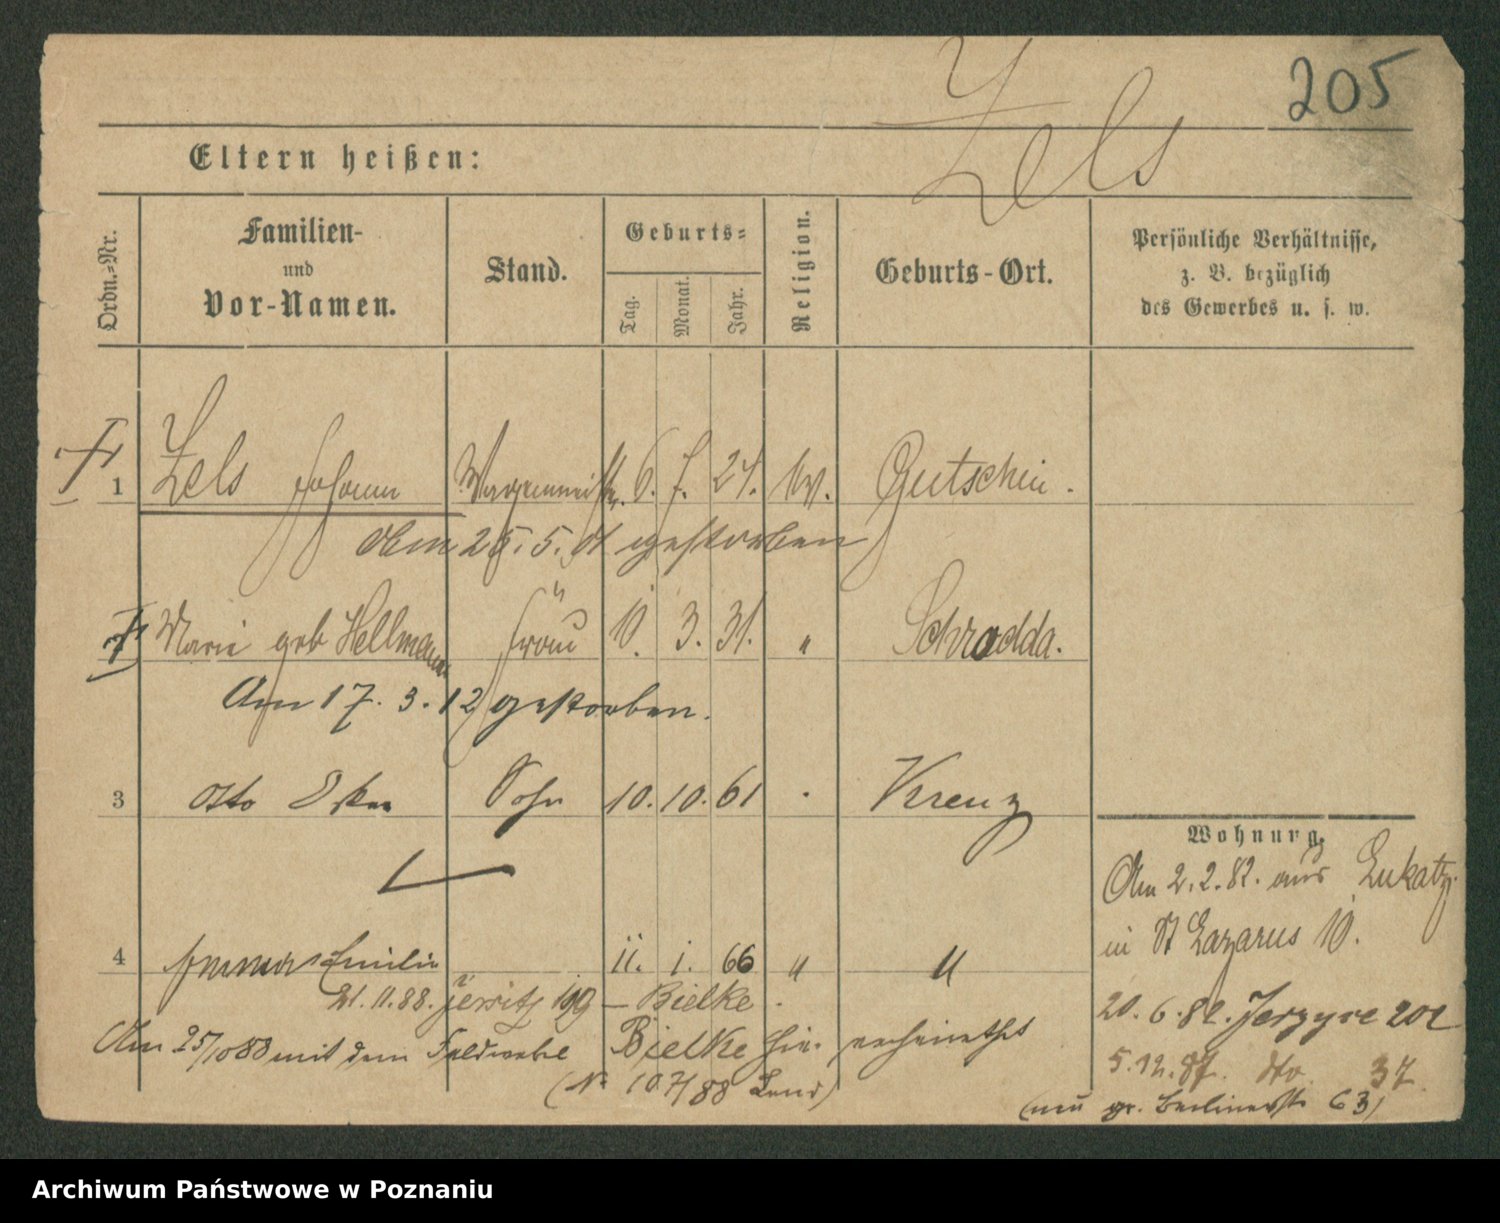 205
Zels
Eltern heißen:
Ordn.-Nr.
Familien- und Vor-Namen.
Stand.
Geburts-
Tag.
Monat.
Jahr.
Religion.
Geburts-Ort.
Persönliche Verhältnisse, z. B. bezüglich des Gewerbes u. s. w.
1 Zels Johann Wagenmeister. 6. 7. 24. Gutschin.
Am 25. 5. 01 gestorben
Marie geb Hellmann Frau 10. 3. 31. " Schrodda.
Am 17. 3. 12 gestorben.
3 Otto Sohn 10. 10. 61 Kreuz
4 Emilie 11. 1. 66 " "
21. 11. 88. Jersitz — Bielke.
Am 25/10 88 mit dem Feldwebel Bielke hier verheirathet
(N 107/88 Land)
Wohnung.
Am 2. 2. 82. aus Lukatz.
in St Lazarus 10.
20. 6. 82. Jerzyce
5. 12. 87. dto. 37.
(neu gr. Berlinerstr 63)
Archiwum Państwowe w Poznaniu